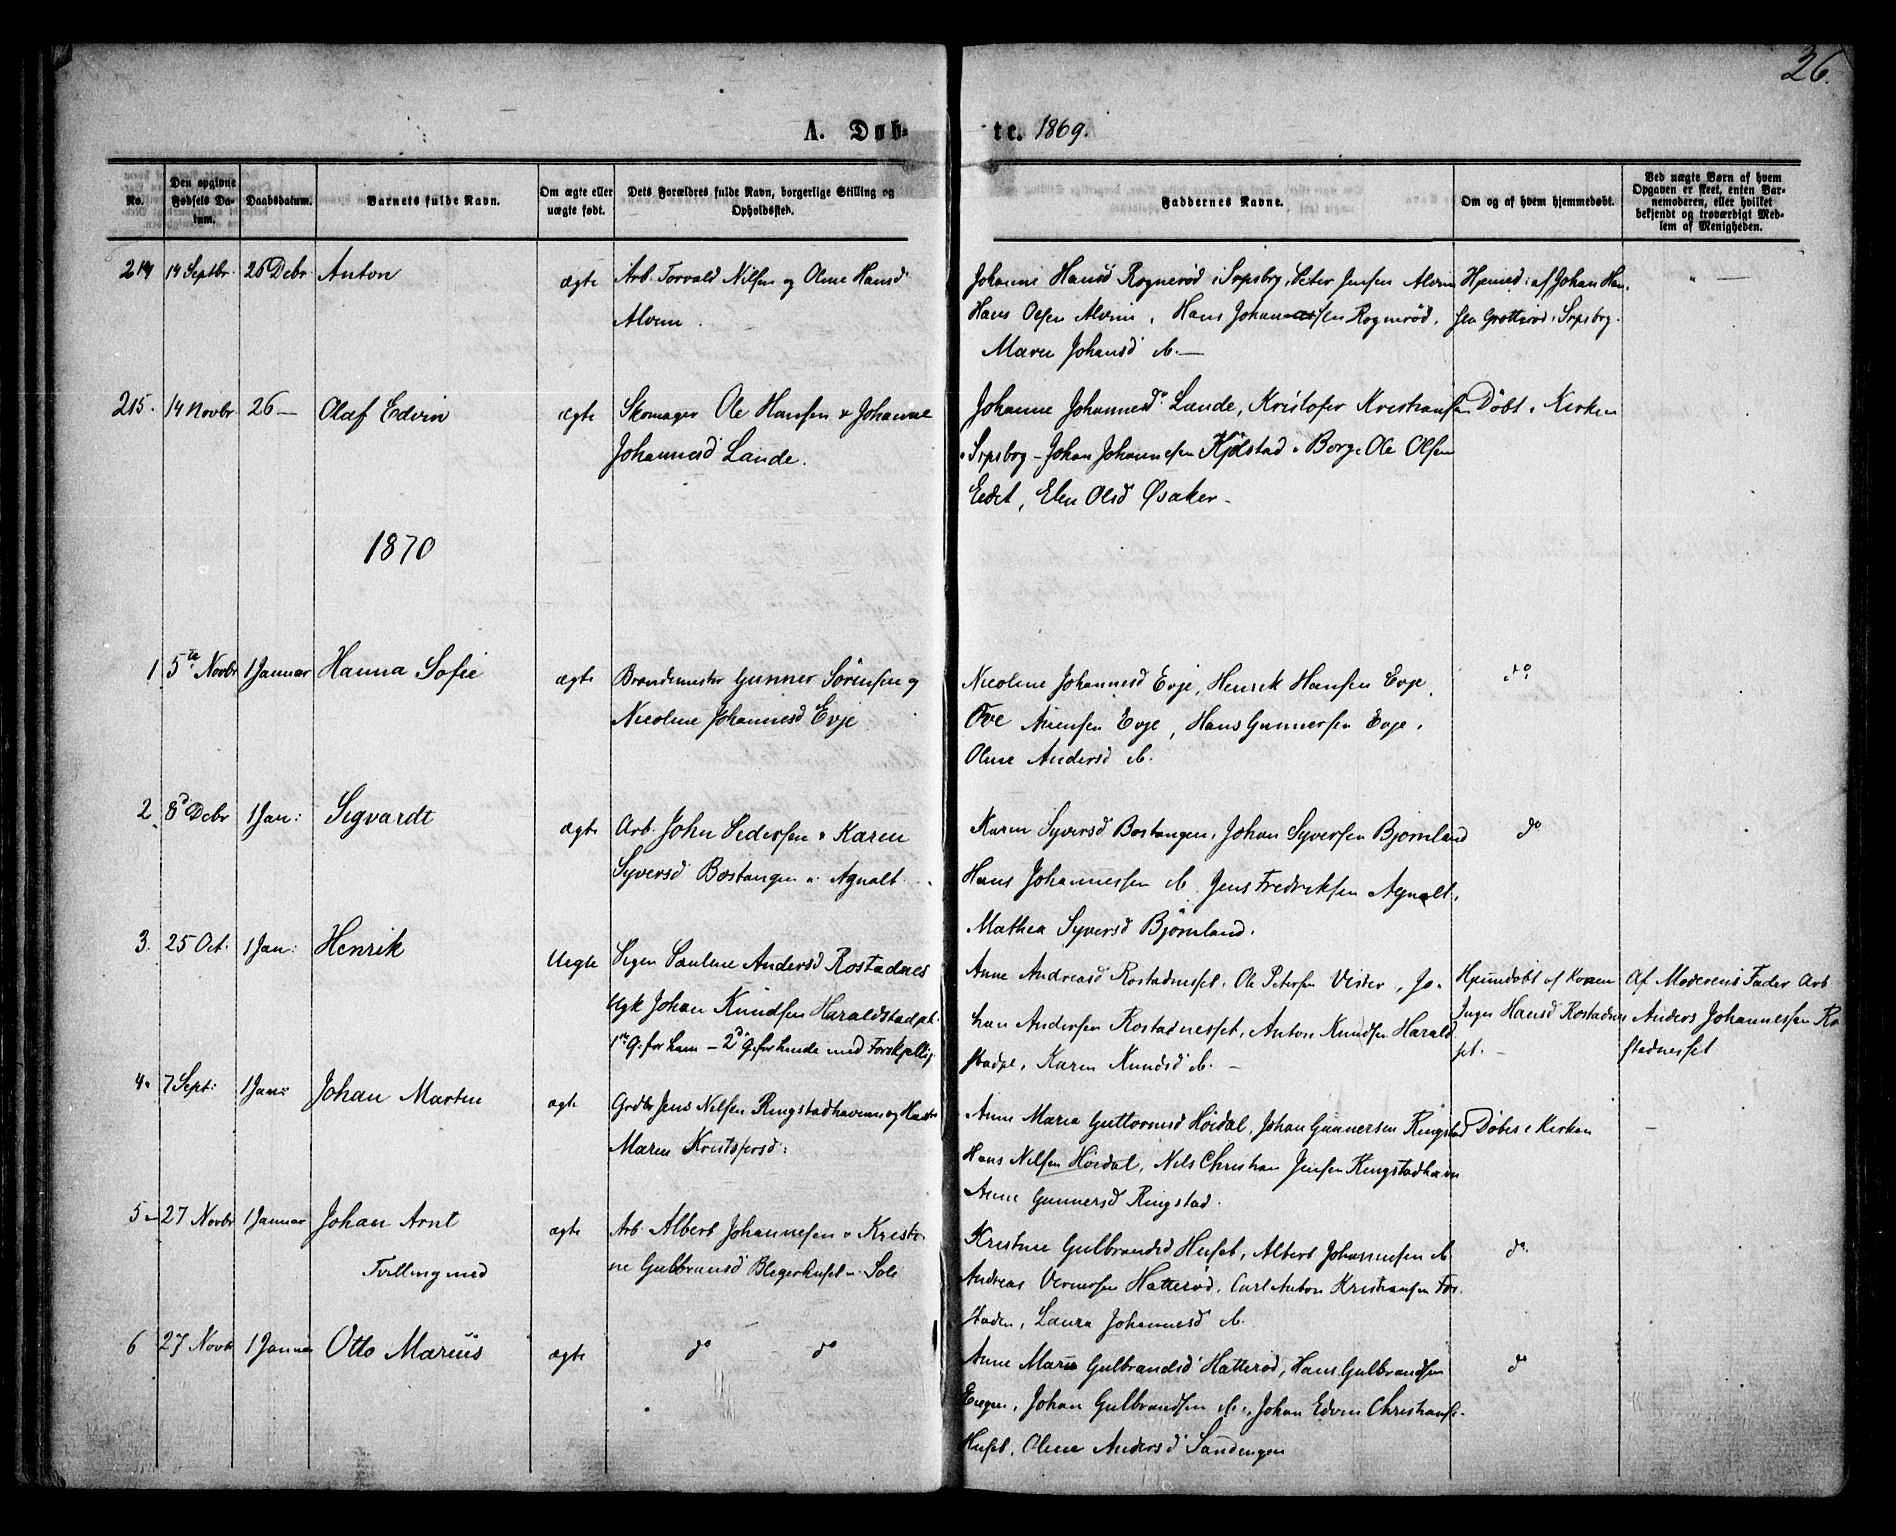 26.
A. Døb-
te. 1869.
No.
Den opgivne Fødsels Da-
tum.
Daabsdatum.
Barnets fulde Navn.
Om ægte eller
uægte født.
Dets Forældres fulde Navn, borgerlige Stilling og
Opholdssted.
Faddernes Navne.
Om og af hvem hjemmedøbt.
Ved uægte Børn af hvem
Opgaven er skeet, enten Bar-
nemoderen, eller hvilket
bekjendt og troværdigt Med-
lem af Menigheden.
214 14 Septbr. 26 Debr. Anton ægte Arb. Torvald Nilsen og Oline Hansd
Alvim.
Johanne Hansd Rognerød i Srpsbrg, Peter Jensen Alvim
Hans Olsen Alvim, Hans Johannessen Rognerød,
Maren Johansd ib. —
Hjemmed: af Johan Han-
sen Grotterød i Srpsbrg.
" —
215. 14 Novbr 26 — Olaf Edvin ægte Skomager Ole Hansen & Johanne
Johannesd Lande.
Johanne Johannesd Lande, Kristofer Kristiansen
i Srpsbrg – Johan Johannesen Kjølstad i Borge Ole Olsen
Eidet, Elen Olsd Øsaker –
Døbt i Kirken
1870
1 5te Novbr 1 Januar Hanna Sofie ægte Brandemester Gunner Sørensen og
Nicoline Johannesd Evje
Nicoline Johannesd Evje, Henrik Hansen Evje,
Arensen Evje, Hans Gunnersen Evje,
Oline Andersd ib.
do
2 8d Debr 1 Jan: Sigvardt ægte Arb. John Pedersen & Karen
Syversd Bostangen u. Agnalt.
Karen Syversd Bostangen, Johan Syversen Bjørnland
Hans Johannessen ib. Jens Fredriksen Agnalt,
Mathea Syversd Bjørnland.
do
3. 25 Oct. 1 Jan: Henrik Uegte Pigen Pauline Andersd Rostadnes
Ugk Johan Knudsen Haraldstadpl.
1ste G. for ham – 2d G. for hende med Forskjellig.
Anne Andreasd Rostadnesset, Ole Petersen Vister, Jo-
han Andersen Rostadnesset, Anton Knudsen Harald
stadpl, Karen Knudsd ib. –
Hjemdøbt af Konen
Inger Hansd Rostadnes
pl. –
Af Moderens Fader Arb
Anders Johannessen Ro
stadnesset
4. 7 Sept: 1 Jan: Johan Martin ægte Grdbr Jens Nilsen Ringstadhavnen og Hustr
Maren Kristofersd:
Anne Maria Guttormsd Høidal, Johan Gunnersen Ringstad
Hans Nilsen Høidal, Nils Christian Jensen Ringstadhavn
Anne Gunnersd Ringstad.
Døbt i Kirken
–
5– 27 Novbr 1 Januar Johan Arnt
Tvilling med
ægte Arb. Albert Johannesen & Kristi-
ne Gulbransd Blegerhuset u. Soli
Kristine Gulbrandsd Huset, Albert Johannesen ib.
Andreas Vernersen Hatterød, Carl Anton Kristiansen
staden, Laura Johannesd ib.
do
6 27 Novbr 1 Januar Otto Marius ægte do do
Anne Maria Gulbrandsd Hatterød, Hans Gulbrandsen
Engen, Johan Gulbrandsen ib., Johan Edvin Christians-
Huset, Oline Andersd Sandengen
do